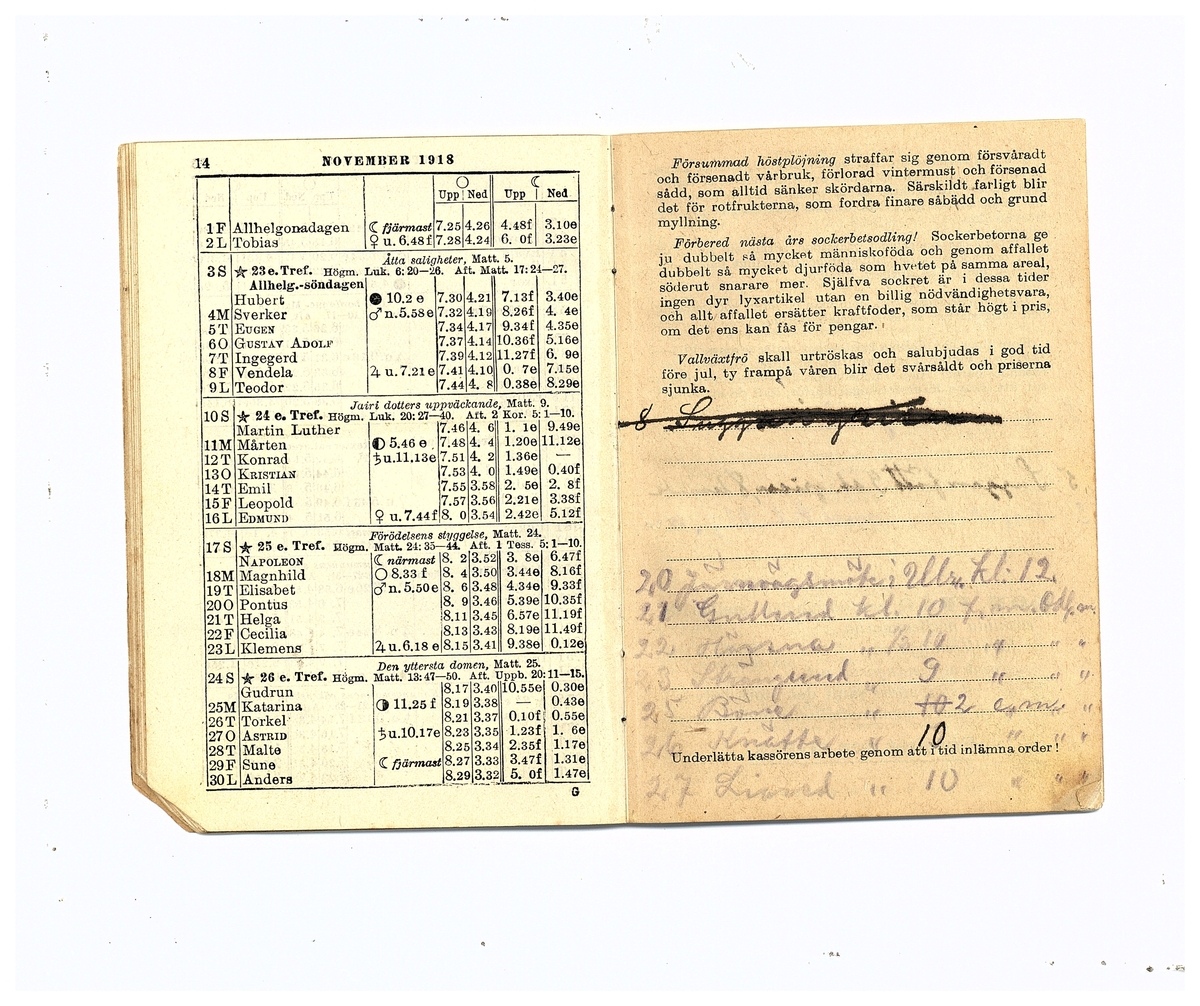 14 NOVEMBER 1918
○ ☾
Upp Ned Upp Ned
1 F Allhelgonadagen ☾ fjärmast 7.25 4.26 4.48f 3.10e
2 L Tobias ♀ u. 6.48f 7.28 4.24 6. 0f 3.23e
Åtta saligheter, Matt. 5.
3 S ★ 23 e. Tref. Högm. Luk. 6: 20–26. Aft. Matt. 17: 24–27.
Allhelg.-söndagen
Hubert ● 10.2 e 7.30 4.21 7.13f 3.40e
4 M Sverker ♂ n. 5.58 e 7.32 4.19 8.26f 4. 4e
5 T EUGEN 7.34 4.17 9.34f 4.35e
6 O GUSTAV ADOLF 7.37 4.14 10.36f 5.16e
7 T Ingegerd 7.39 4.12 11.27f 6. 9e
8 F Vendela ♃ u. 7.21 e 7.41 4.10 0. 7e 7.15e
9 L Teodor 7.44 4. 8 0.38e 8.29e
Jairi dotters uppväckande, Matt. 9.
10 S ★ 24 e. Tref. Högm. Luk. 20: 27–40. Aft. 2 Kor. 5: 1–10.
Martin Luther 7.46 4. 6 1. 1e 9.49e
11 M Mårten ◐ 5.46 e 7.48 4. 4 1.20e 11.12e
12 T Konrad ♄ u. 11.13e 7.51 4. 2 1.36e —
13 O KRISTIAN 7.53 4. 0 1.49e 0.40f
14 T Emil 7.55 3.58 2. 5e 2. 8f
15 F Leopold 7.57 3.56 2.21e 3.38f
16 L EDMUND ♀ u. 7.44f 8. 0 3.54 2.42e 5.12f
Förödelsens styggelse, Matt. 24.
17 S ★ 25 e. Tref. Högm. Matt. 24: 35–44. Aft. 1 Tess. 5: 1–10.
NAPOLEON ☾ närmast 8. 2 3.52 3. 8e 6.47f
18 M Magnhild ○ 8.33 f 8. 4 3.50 3.44e 8.16f
19 T Elisabet ♂ n. 5.50e 8. 6 3.48 4.34e 9.33f
20 O Pontus 8. 9 3.46 5.39e 10.35f
21 T Helga 8.11 3.45 6.57e 11.19f
22 F Cecilia 8.13 3.43 8.19e 11.49f
23 L Klemens ♃ u. 6.18 e 8.15 3.41 9.38e 0.12e
Den yttersta domen, Matt. 25.
24 S ★ 26 e. Tref. Högm. Matt. 13: 47–50. Aft. Uppb. 20: 11–15.
Gudrun 8.17 3.40 10.55e 0.30e
25 M Katarina ◑ 11.25 f 8.19 3.38 — 0.43e
26 T Torkel 8.21 3.37 0.10f 0.55e
27 O ASTRID ♄ u. 10.17e 8.23 3.35 1.23f 1. 6e
28 T Malte 8.25 3.34 2.35f 1.17e
29 F Sune ☾ fjärmast 8.27 3.33 3.47f 1.31e
30 L Anders 8.29 3.32 5. 0f 1.47e
G
Försummad höstplöjning straffar sig genom försvåradt
och försenadt vårbruk, förlorad vintermust och försenad
sådd, som alltid sänker skördarna. Särskildt farligt blir
det för rotfrukterna, som fordra finare såbädd och grund
myllning.
Förbered nästa års sockerbetsodling! Sockerbetorna ge
ju dubbelt så mycket människoföda och genom affallet
dubbelt så mycket djurföda som hvetet på samma areal,
söderut snarare mer. Själfva sockret är i dessa tider
ingen dyr lyxartikel utan en billig nödvändighetsvara,
och allt affallet ersätter kraftfoder, som står högt i pris,
om det ens kan fås för pengar.
Vallväxtfrö skall urtröskas och salubjudas i god tid
före jul, ty frampå våren blir det svårsåldt och priserna
sjunka.
8
20 i Ulr. kl. 12.
21 kl. 10 f. m.
22 " ½ 10 " "
23 9 " "
25 " 10 2 e m. "
26 " 10 " "
Underlätta kassörens arbete genom att i tid inlämna order!
27 " 10 " "